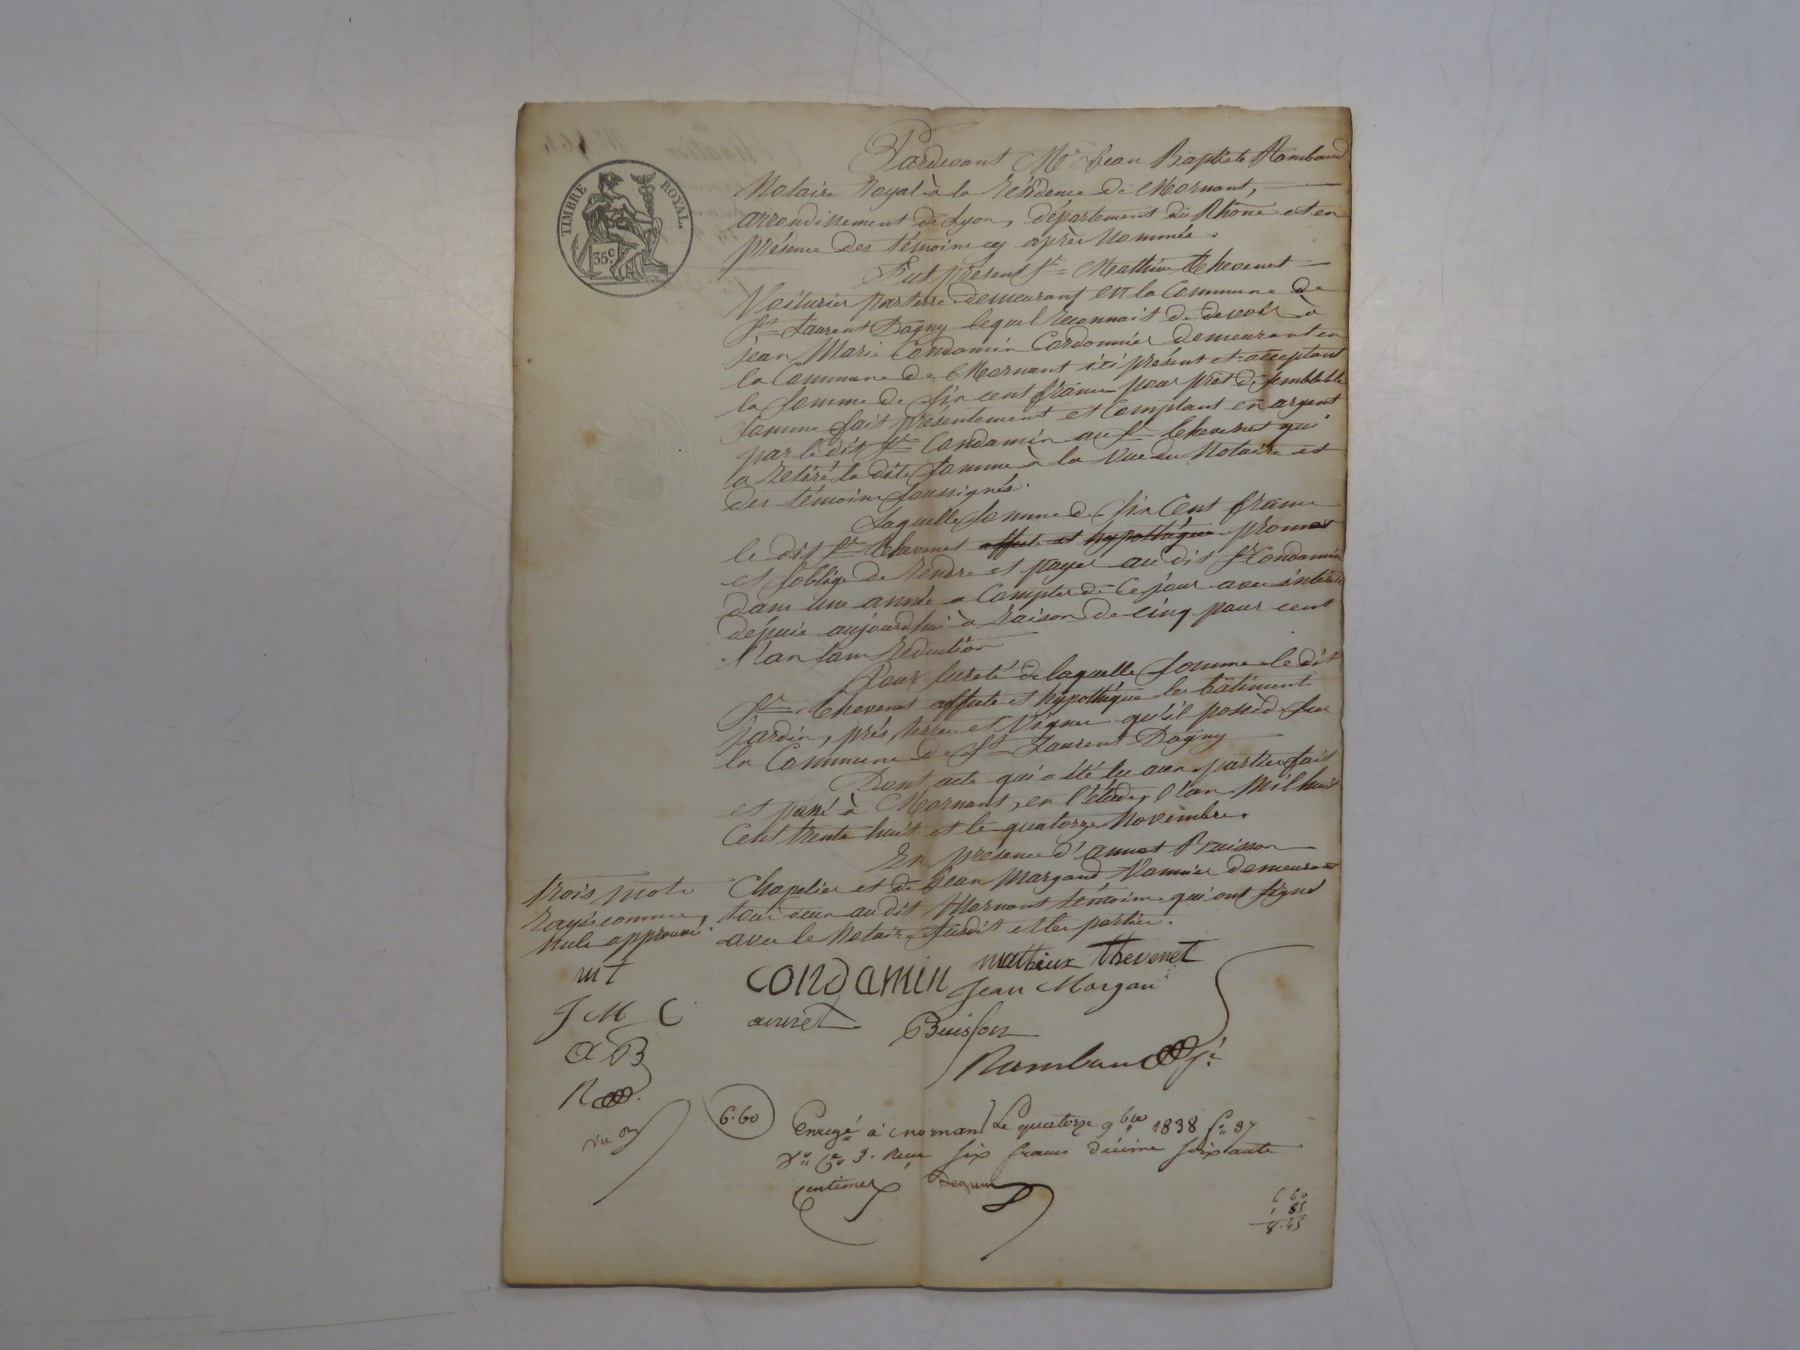 TIMBRE ROYAL.
35c.
Pardevant Me Jean Baptiste Rambaud
Notaire Royal à la résidence de Mornant,
arrondissement de Lyon, département du Rhône et en
présence des témoins cy après nommés.
Fut présent Sr Mathieu Thevenet
Voiturier par terre demeurant en la Commune de
St Laurent Dagny lequel reconnait de devoir à
jean Marie Condamin Cordonnier demeurant en
la Commune de Mornant ici présent et acceptant
la Somme de Six cent francs pour prêt de Semblable
Somme fait présentement et Comptant en argent
par le dit Sr Condamin au Sr thevenet qui
la retiré la dite Somme à la vue du Notaire et
des témoins Soussignés.
Laquelle Somme de Six Cent francs
le dit Sr thevenet affecte et hypothèque promet
et Soblige de rendre et payer au dit Sr Condamin
dans une année a Compter de Ce jour avec intérêt
dépuis aujourdhui à raison de cinq pour cent
l'an Sans réduction
Pour Sureté de laquelle Somme le dit
Sr thevenet affecte et hypothèque les bâtiment
jardin, prés, terres et Vignes qu'il possède Sur
la Commune de St Laurent Dagny
Dont acte qui a été lu aux parties fait
et passé à Mornant, en l'étude, l'an Mil huit
Cent trente huit et le quatorze Novembre.
En présence d'annet Buisson
Chapelier et de Jean Margand Vannier demeurant
tous deux au dit Mornant témoins qui ont Signé
avec le Notaire Susdit et les parties.
trois mots
rayés comme
nuls approuvé.
mt
J M C
a B
R
Condamin
mathieux thevenet
Jean Morgan
Buisson
Rambaud
6.60
Enregé à mornant Le quatorze 9bre 1838 fo 87
Vo Ce 3. Reçu Six francs décime Soixante
centimes
6 60
1 85
8.45